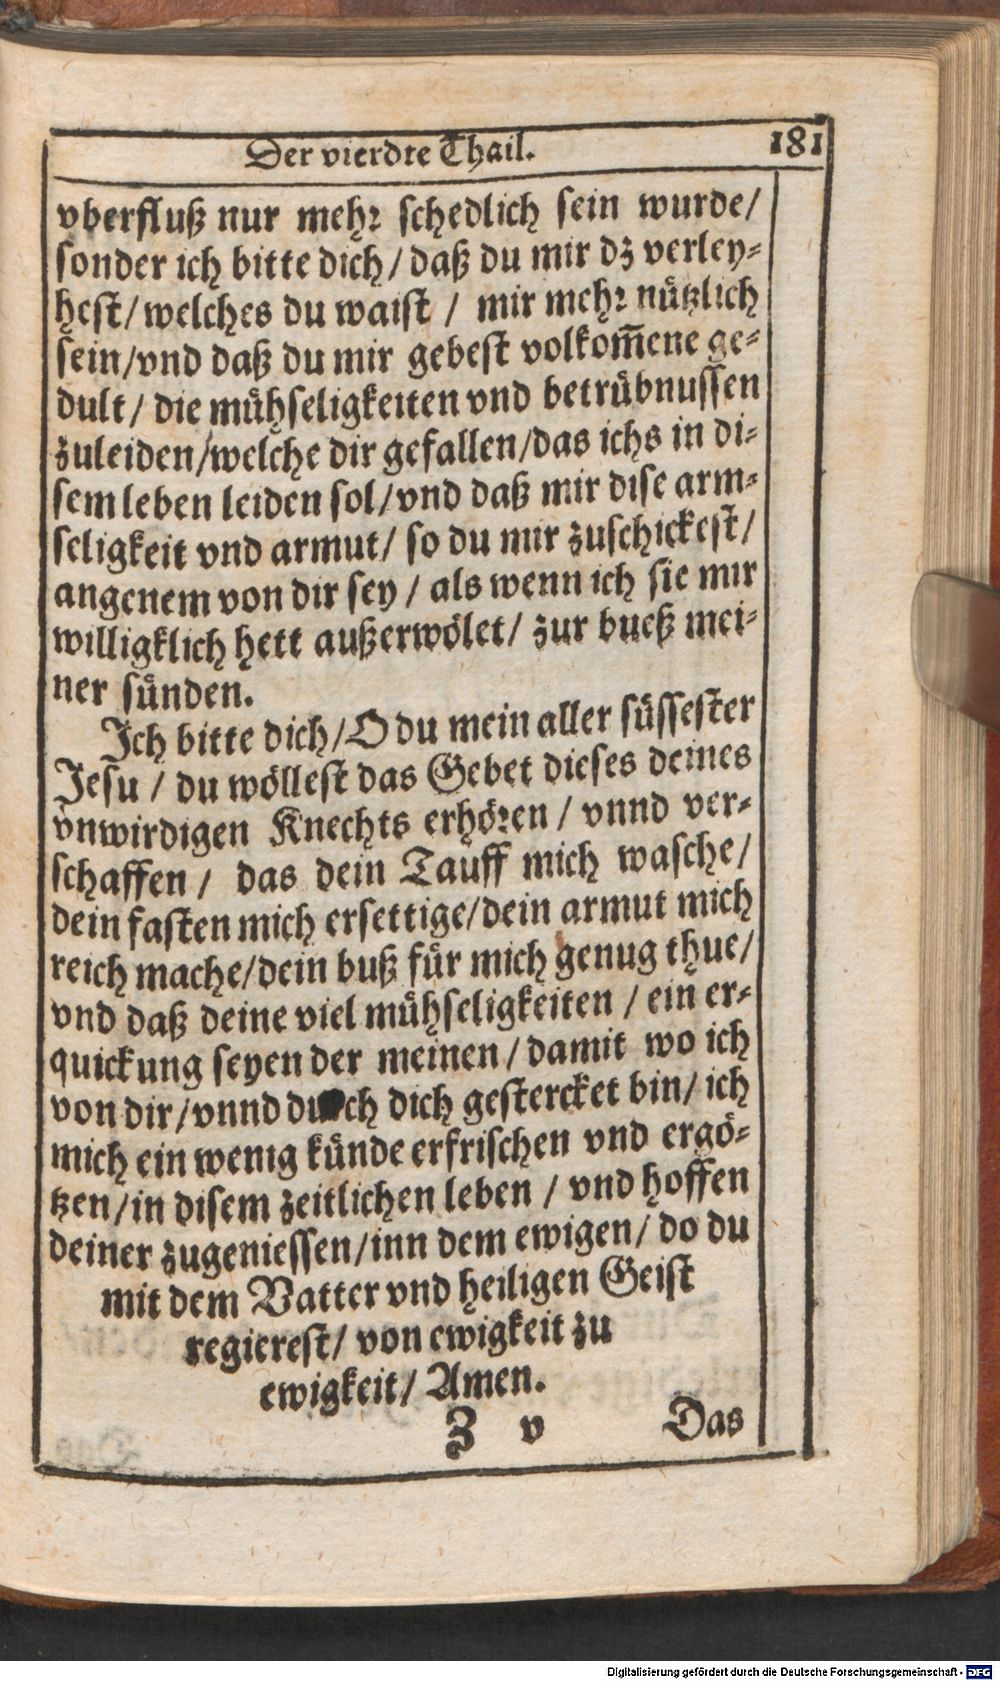 Der vierdte Thail. 181
vberfluß nur mehr schedlich sein wurde/
sonder ich bitte dich/ daß du mir dz verley-
hest/ welches du waist / mir mehr nützlich
sein/vnd daß du mir gebest volkom̄ene ge-
dult/ die mühseligkeiten vnd betrübnussen
zuleiden/welche dir gefallen/das ichs in di-
sem leben leiden sol/vnd daß mir dise arm-
seligkeit vnd armut/ so du mir zuschickest/
angenem von dir sey / als wenn ich sie mir
willigklich hett außerwölet/ zur bueß mei-
ner sünden.
Ich bitte dich/O du mein aller süssester
Jesu / du wöllest das Gebet dieses deines
vnwirdigen Knechts erhören / vnnd ver-
schaffen / das dein Tauff mich wasche/
dein fasten mich ersettige/dein armut mich
reich mache/dein buß für mich genug thue/
vnd daß deine viel mühseligkeiten / ein er-
quickung seyen der meinen / damit wo ich
von dir/vnnd durch dich gestercket bin/ ich
mich ein wenig künde erfrischen vnd ergö-
tzen/in disem zeitlichen leben / vnd hoffen
deiner zugeniessen/inn dem ewigen/ do du
mit dem Vatter vnd heiligen Geist
regierest/ von ewigkeit zu
ewigkeit/ Amen.
Z v Das
Digitalisierung gefördert durch die Deutsche Forschungsgemeinschaft - DFG